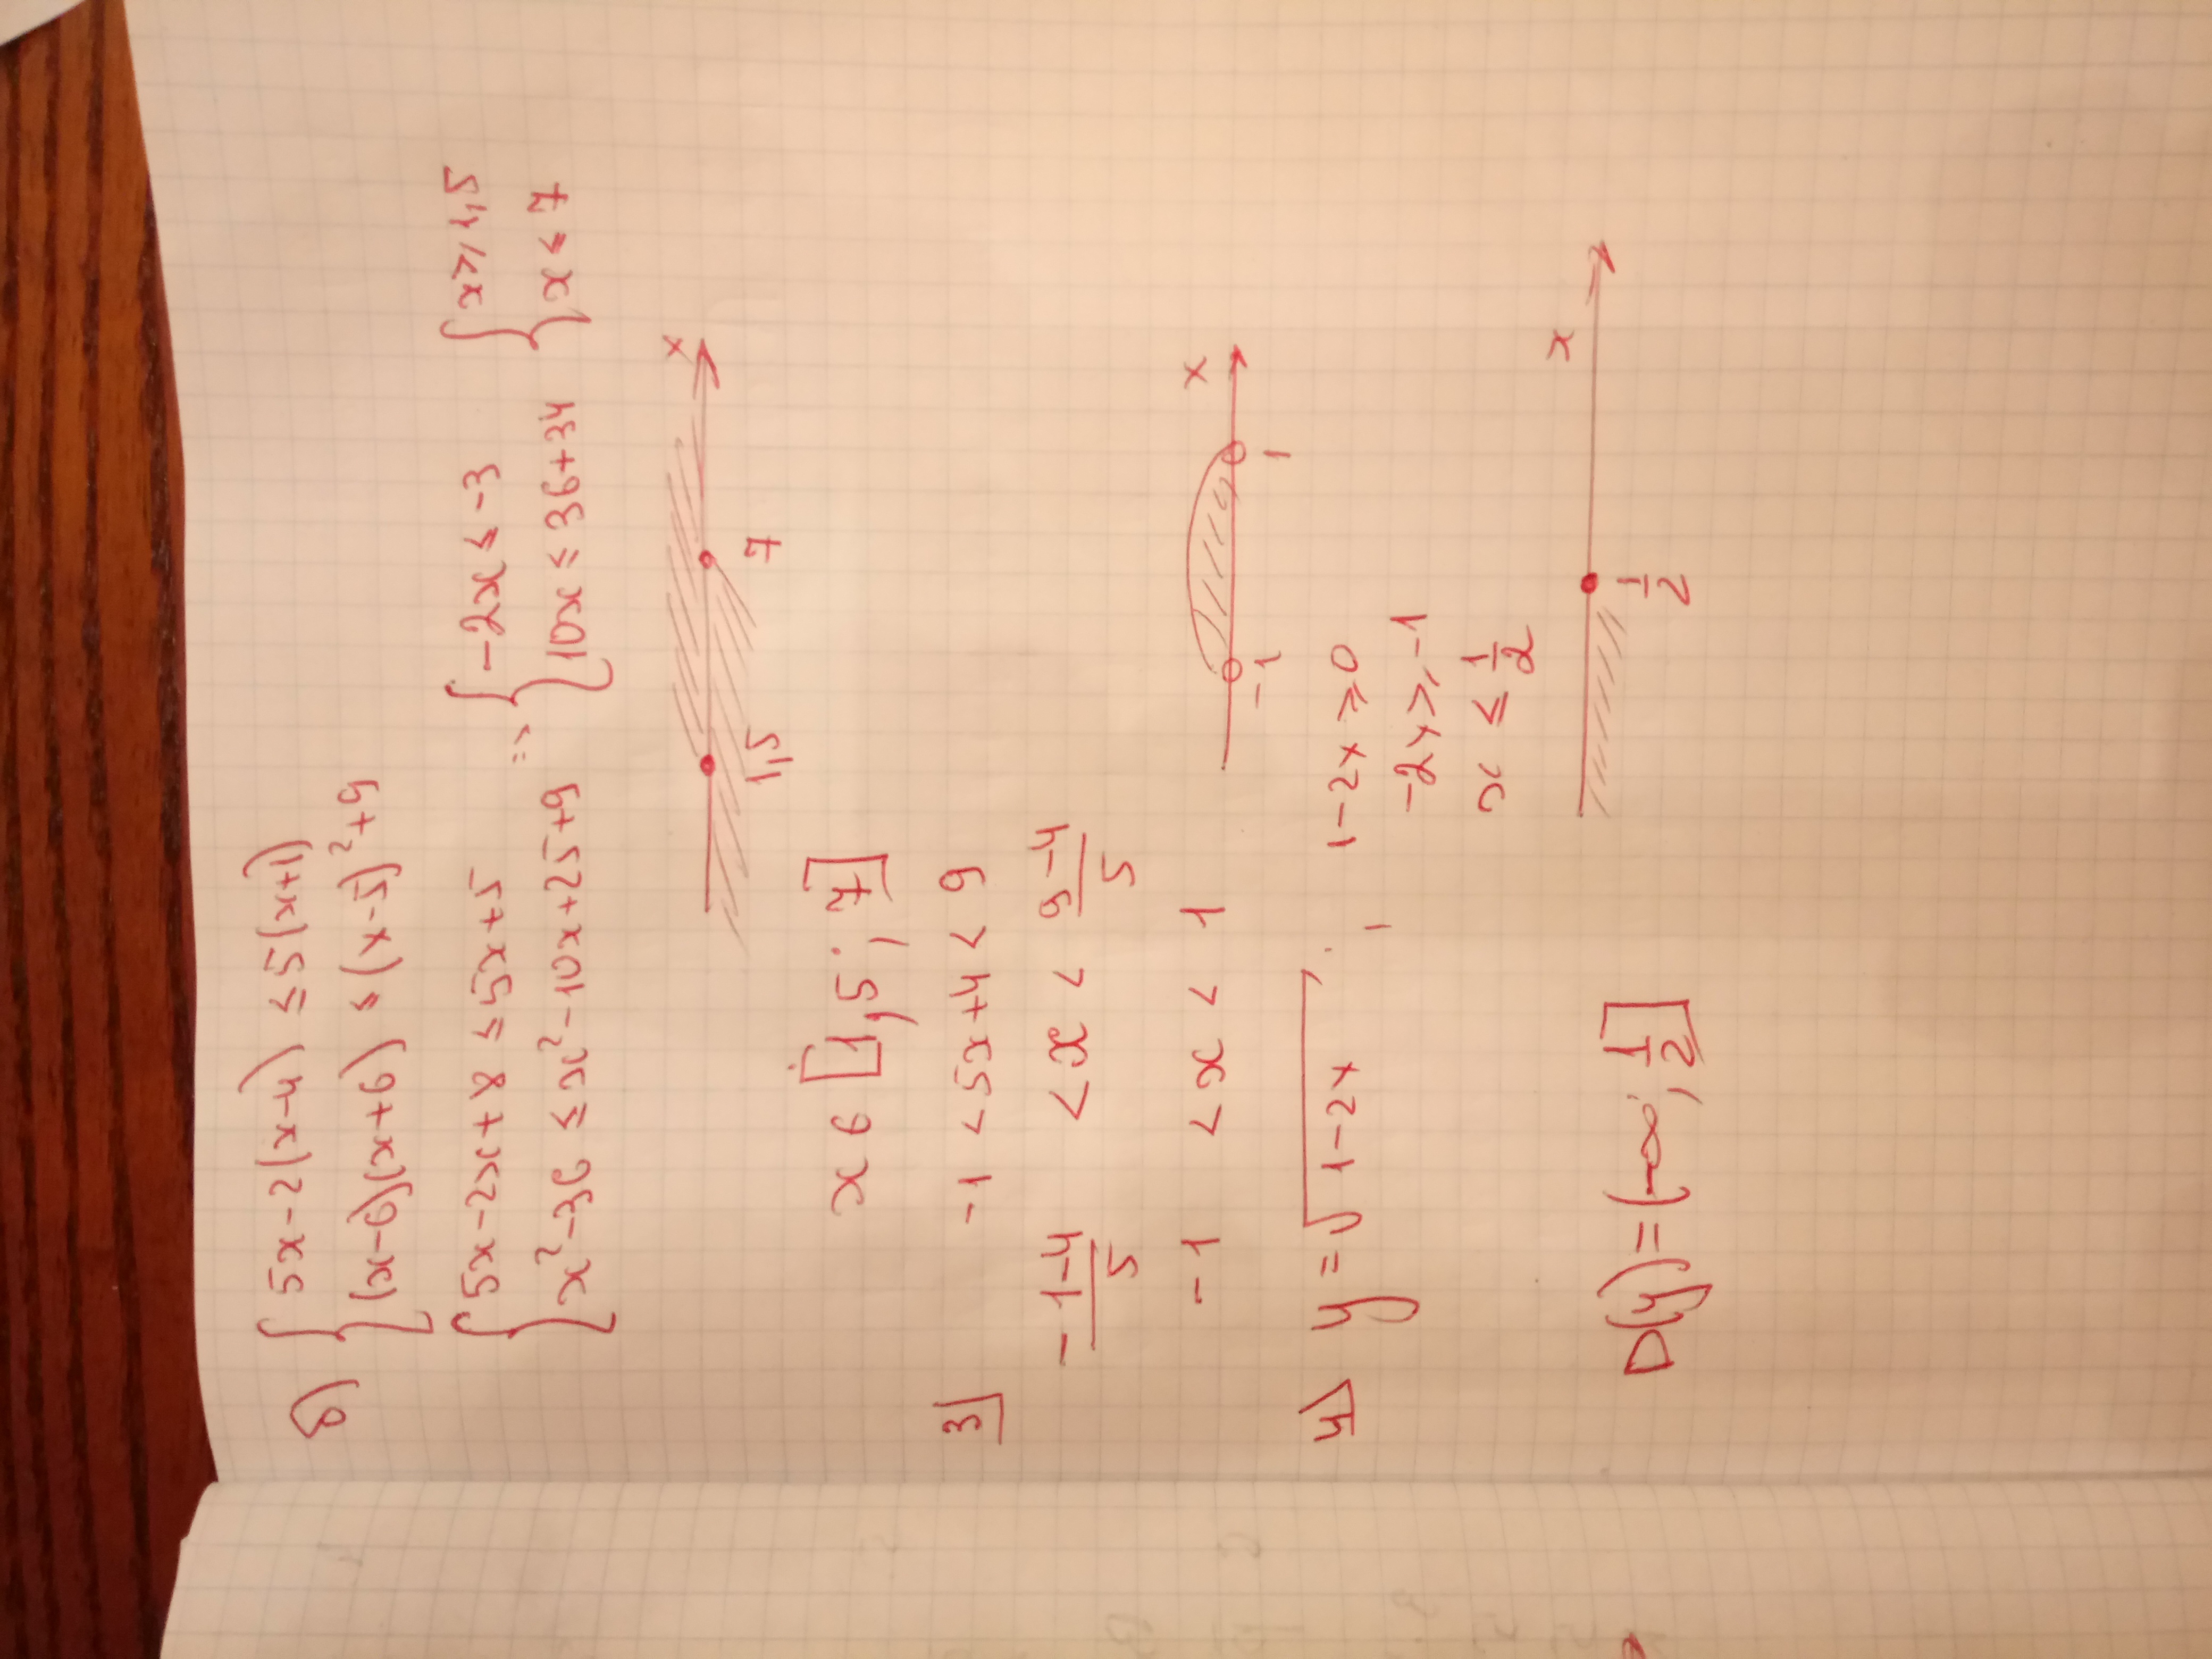 б) { 5x-2(x-4) ≤ 5(x+1)
(x-6)(x+6) ≤ (x-5)²+9
{ 5x-2x+8 ≤ 5x+5 => { -2x ≤ -3 { x ≥ 1,5
x²-36 ≤ x²-10x+25+9 10x ≤ 36+34 x ≤ 7
x
1,5 7
x ϵ [1,5; 7]
3) -1 < 5x+4 < 9
(-1-4)/5 < x < (9-4)/5
-1 < x < 1
x
-1 1
4) y = √(1-2x) ; 1-2x ≥ 0
-2x ≥ -1
x ≤ 1/2
x
1/2
D(y) = (-∞; 1/2]